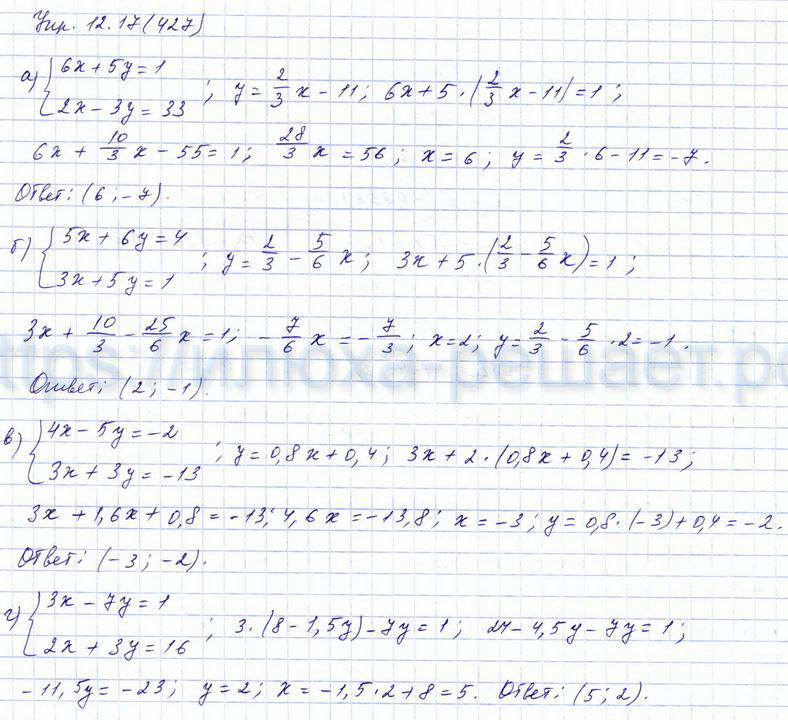 Упр. 12.17(427)
а) {6x + 5y = 1
2x – 3y = 33 ; y = 2/3 x – 11; 6x + 5 · (2/3 x – 11) = 1 ;
6x + 10/3 x – 55 = 1; 28/3 x = 56; x = 6; y = 2/3 · 6 – 11 = –7.
Ответ: (6; –7).
б) {5x + 6y = 4
3x + 5y = 1 ; y = 2/3 – 5/6 x; 3x + 5 · (2/3 – 5/6 x) = 1 ;
3x + 10/3 – 25/6 x = 1; –7/6 x = –7/3; x = 2; y = 2/3 – 5/6 · 2 = –1.
https://илюха-решает.рф
Ответ: (2; –1).
в) {4x – 5y = –2
3x + 3y = –13 ; y = 0,8x + 0,4; 3x + 2 · (0,8x + 0,4) = –13;
3x + 1,6x + 0,8 = –13; 4,6x = –13,8; x = –3; y = 0,8 · (–3) + 0,4 = –2.
Ответ: (–3; –2).
г) {3x – 7y = 1
2x + 3y = 16 ; 3 · (8 – 1,5y) – 7y = 1; 24 – 4,5y – 7y = 1;
–11,5y = –23; y = 2; x = –1,5 · 2 + 8 = 5. Ответ: (5; 2).